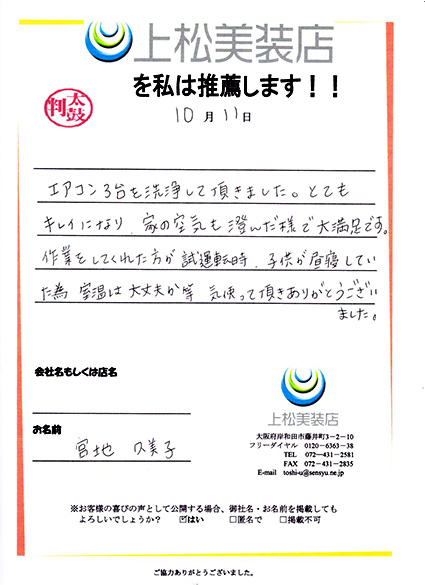 上松美装店
を私は推薦します！！
太鼓判
10月11日
エアコン3台を洗浄して頂きました。とても
キレイになり、家の空気も澄んだ様で大満足です。
作業をしてくれた方が試運転時、子供が昼寝してい
た為 室温は大丈夫か等 気使って頂きありがとうござい
ました。
会社名もしくは店名
お名前
宮地 久美子
上松美装店
大阪府岸和田市藤井町3－2－10
フリーダイヤル 0120－6363－38
TEL 072－431－2581
FAX 072－431－2835
E-mail toshi-u@sensyu.ne.jp
※お客様の喜びの声として公開する場合、御社名・お名前を掲載しても
よろしいでしょうか？ ☑はい □匿名で □掲載不可
ご協力ありがとうございました。